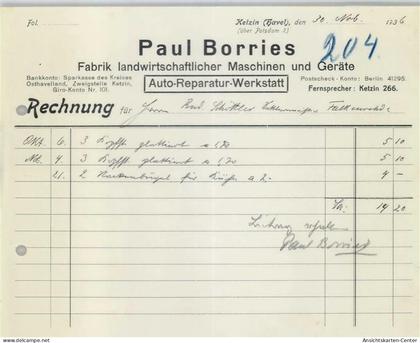 Fol.
Ketzin (Havel), den 30. Nov. 1936
(über Potsdam 2)
204
Paul Borries
Fabrik landwirtschaftlicher Maschinen und Geräte
Bankkonto: Sparkasse des Kreises
Osthavelland, Zweigstelle Ketzin,
Giro-Konto Nr. 101.
Auto-Reparatur-Werkstatt
Postscheck-Konto: Berlin 41295.
Fernsprecher: Ketzin 266.
Rechnung für Herrn Falkenrehde
6. 3 a 1,70 5 10
Nov. 9. 3 a 1,70 5 10
21. 2 für a 2.- 4 –
14 20
Paul Borries
Ansichtskarten-Center